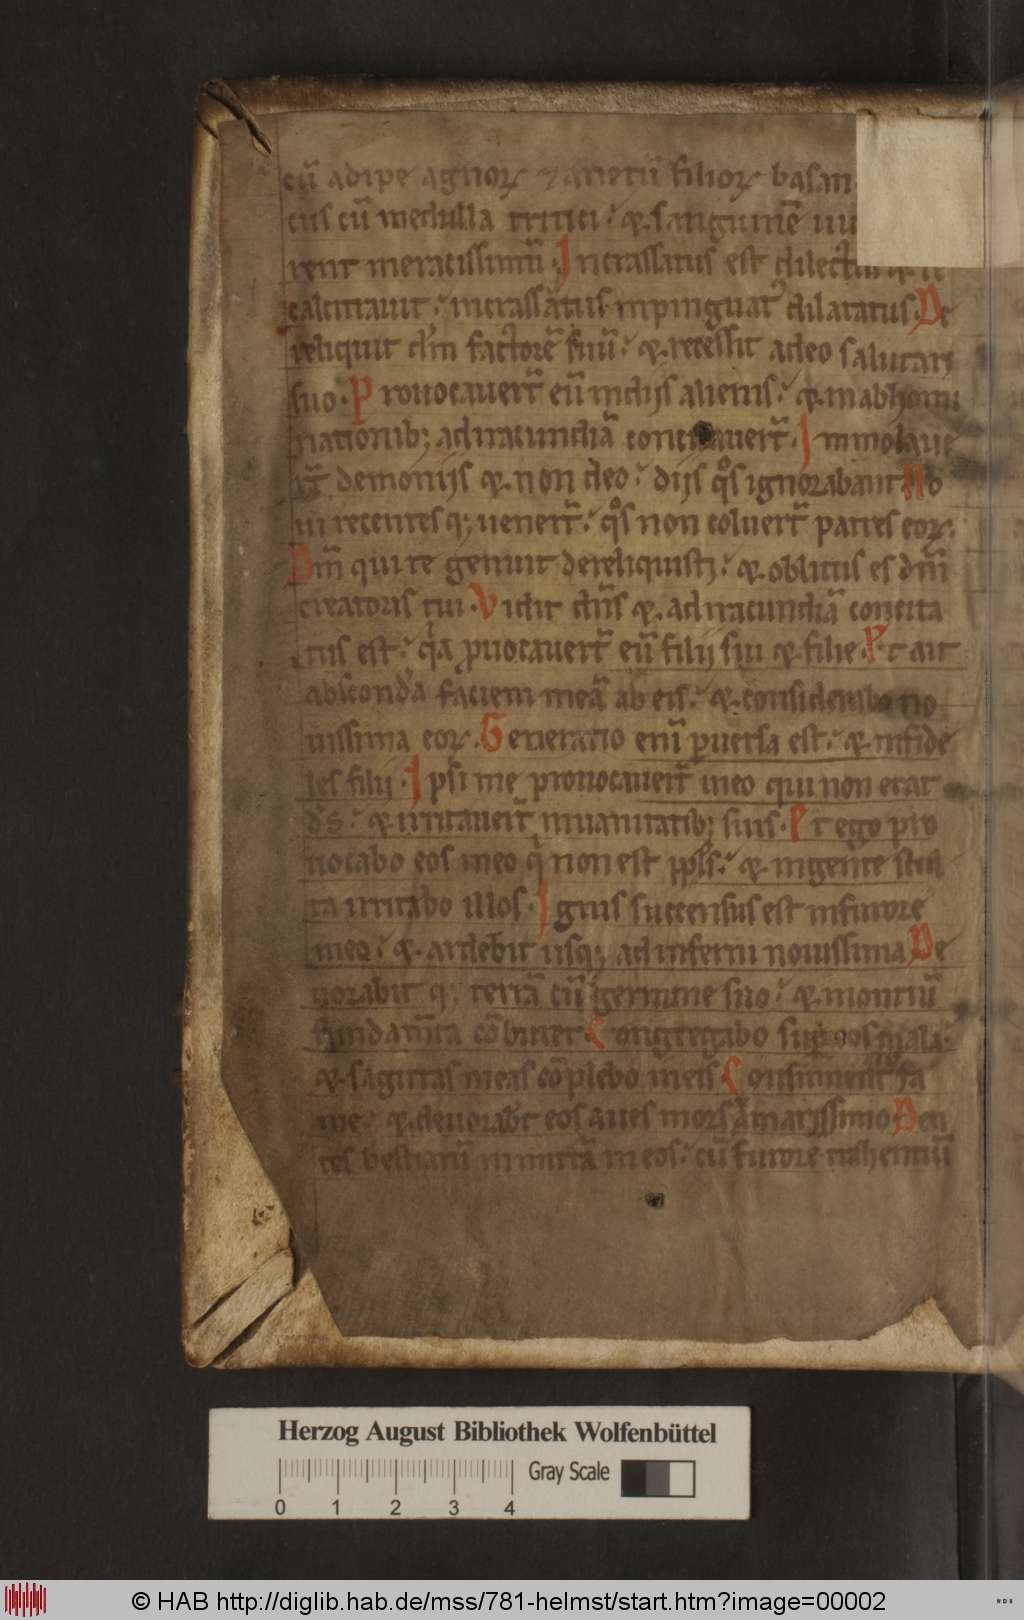 cũ adipe agnoꝝ ⁊ arietũ filioꝝ basan
cus cũ medulla tritici · ⁊ sanguinẽ uu
rent meracissimũ · Incrassatus est dilectus ⁊ re
calcitrauit · incrassatus inpinguatꝰ dilatatus · De
reliquit dm̃ factorẽ suũ · ⁊ recessit a deo salutari
suo · Prouocauer̃t eũ in diis alienis · ⁊ in abhomi
nationib; ad iracundiã concitauer̃t · Immolaue
rt̃ demoniis ⁊ non deo · diis q̊s ignorabant No
ui recentes q; uener̃t · q̊s non coluer̃t patres eoꝝ ·
Dm̃ qui te genuit dereliquisti · ⁊ oblitus es dm̃
creatoris tui · Vidit dñs ⁊ ad iracundiã concita
tus est · q̓a ꝓuocauer̃t eũ filii sui ⁊ filie · Et ait
abscondã faciem meã ab eis · ⁊ considerabo no
uissima eoꝝ · Generatio enĩ ꝑuersa est · ⁊ infide
les filii · Ipsi me prouocauer̃t in eo qui non erat
d̃s · ⁊ irritauer̃t in uanitatib; suis · Et ego pro
uocabo eos in eo q̓ non est ppl̃s · ⁊ in gente stul
ta irritabo illos · Ignis succensus est in furore
meo · ⁊ ardebit usq; ad inferni nouissima De
uorabit q; terrã cũ germine suo · ⁊ montiũ
fundam̃ta cõburet · Congregabo sup eos mala ·
⁊ sagittas meas cõplebo in eis · Consumentur fa
me · ⁊ deuorab̃t eos aues morsu amarissimo · Den
tes bestiarũ inmittã in eos · cũ furore trahentiũ
Herzog August Bibliothek Wolfenbüttel
Gray Scale
0 1 2 3 4
© HAB http://diglib.hab.de/mss/781-helmst/start.htm?image=00002